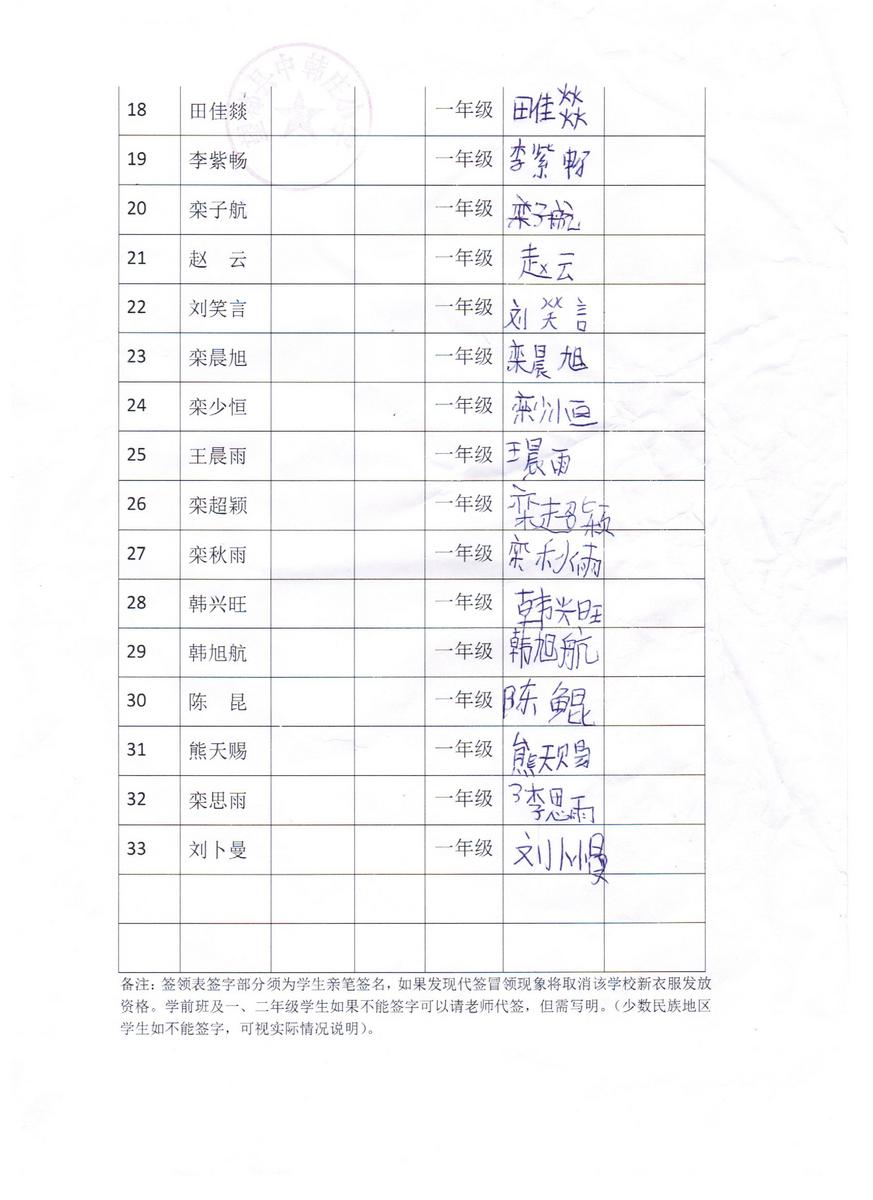 18 田佳燚 一年级 田佳燚
19 李紫畅 一年级 李紫畅
20 栾子航 一年级 栾子航
21 赵 云 一年级 赵云
22 刘笑言 一年级 刘笑言
23 栾晨旭 一年级 栾晨旭
24 栾少恒 一年级 栾少恒
25 王晨雨 一年级 王晨雨
26 栾超颖 一年级 栾超颖
27 栾秋雨 一年级 栾秋雨
28 韩兴旺 一年级 韩兴旺
29 韩旭航 一年级 韩旭航
30 陈 昆 一年级 陈鲲
31 熊天赐 一年级 熊天赐
32 栾思雨 一年级 思雨
33 刘卜曼 一年级 刘卜
备注：签领表签字部分须为学生亲笔签名，如果发现代签冒领现象将取消该学校新衣服发放
资格。学前班及一、二年级学生如果不能签字可以请老师代签，但需写明。（少数民族地区
学生如不能签字，可视实际情况说明）。